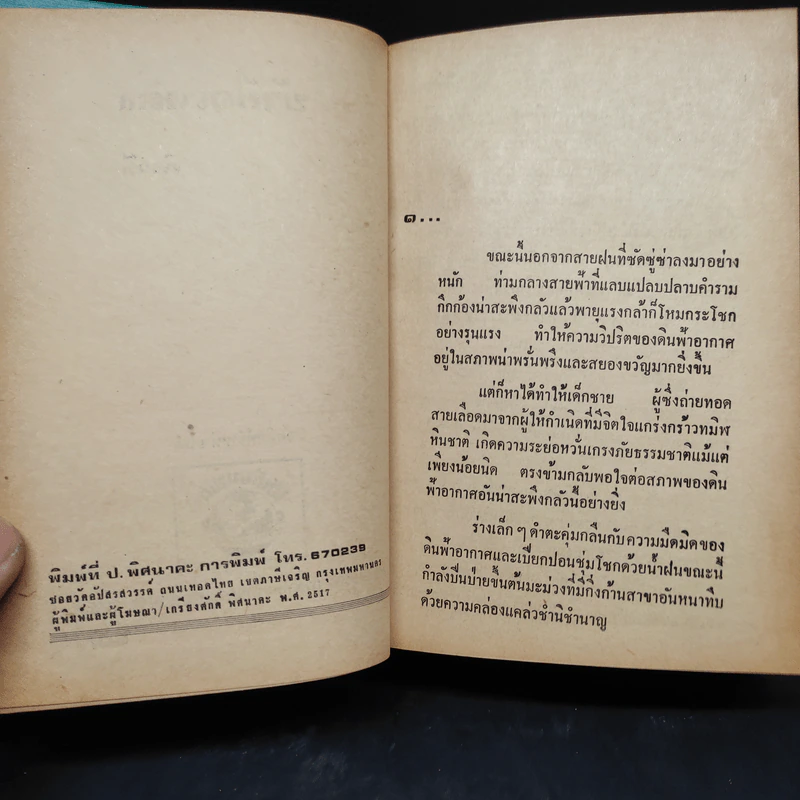 พิมพ์ที่ ป. พิศนาคะ การพิมพ์ โทร. 670239
ซอยวัดอัปสรสวรรค์ ถนนเทอดไทย เขตภาษีเจริญ กรุงเทพมหานคร
ผู้พิมพ์และผู้โฆษณา/เกรียงศักดิ์ พิศนาคะ พ.ศ. 2517
๑...
ขณะนี้นอกจากสายฝนที่ซัดซู่ซ่าลงมาอย่าง
หนัก ท่ามกลางสายฟ้าที่แลบแปลบปลาบคำราม
กึกก้องน่าสะพึงกลัวแล้วพายุแรงกล้าก็โหมกระโชก
อย่างรุนแรง ทำให้ความวิปริตของดินฟ้าอากาศ
อยู่ในสภาพน่าพรั่นพรึงและสยองขวัญมากยิ่งขึ้น
แต่ก็หาได้ทำให้เด็กชาย ผู้ซึ่งถ่ายทอด
สายเลือดมาจากผู้ให้กำเนิดที่มีจิตใจแกร่งกร้าวทมิฬ
หินชาติ เกิดความระย่อหวั่นเกรงภัยธรรมชาติแม้แต่
เพียงน้อยนิด ตรงข้ามกลับพอใจต่อสภาพของดิน
ฟ้าอากาศอันน่าสะพึงกลัวนี้อย่างยิ่ง
ร่างเล็ก ๆ ดำตะคุ่มกลืนกับ ความมืดมิดของ
ดินฟ้าอากาศและเปียกปอนชุ่มโชกด้วยน้ำฝนขณะนี้
กำลังปีนป่ายขึ้นต้นมะม่วงที่มีกิ่งก้านสาขาอันหนาทึบ
ด้วยความคล่องแคล่วช่ำนิชำนาญ